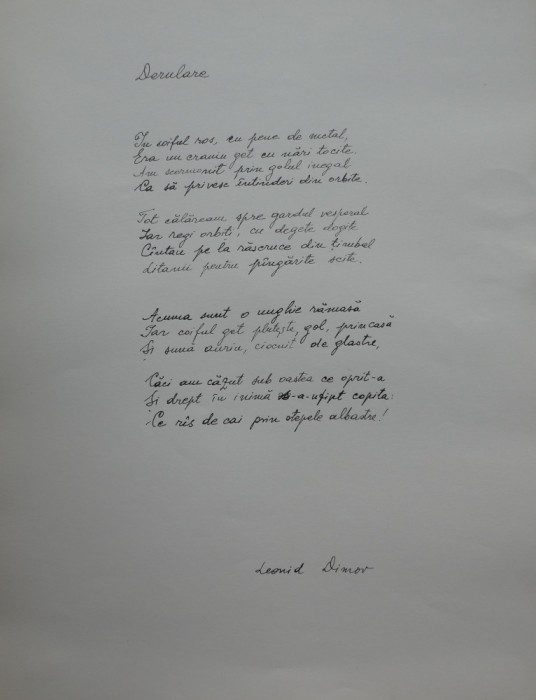 Derulare
In coiful ros, cu pene de metal,
Era un craniu get cu nări tocite.
Am surmenat prin golul inegal
Ca să privesc întinderi din orbite.
Tot călăream spre gardul vesperal
Iar regi orbiți, cu degete dogite
Cîntau pe la răscruce din țimbal
Litanii pentru pîngărite scite.
Acuma sunt o unghie rămasă
Iar coiful get plutește, gol, prin casă
Și sună auriu, ciocnit de glastre,
Căci am căzut sub oastea ce oprit-a
Și drept în inimă și-a-nfipt copita:
Ce rîs de cai prin stepele albastre!
Leonid Dimov